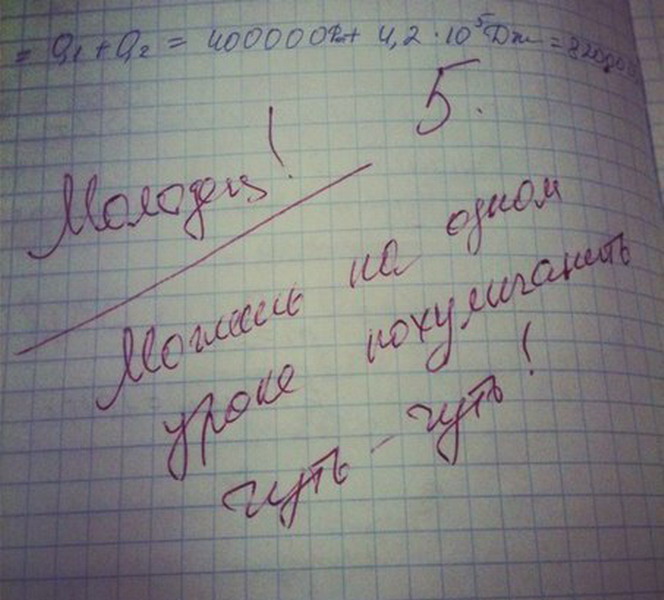 = Q₁ + Q₂ = 400000 Дж + 4,2 · 10⁵ Дж =
5.
Молодец!
Можешь на одном
уроке похулиганить
чуть-чуть!